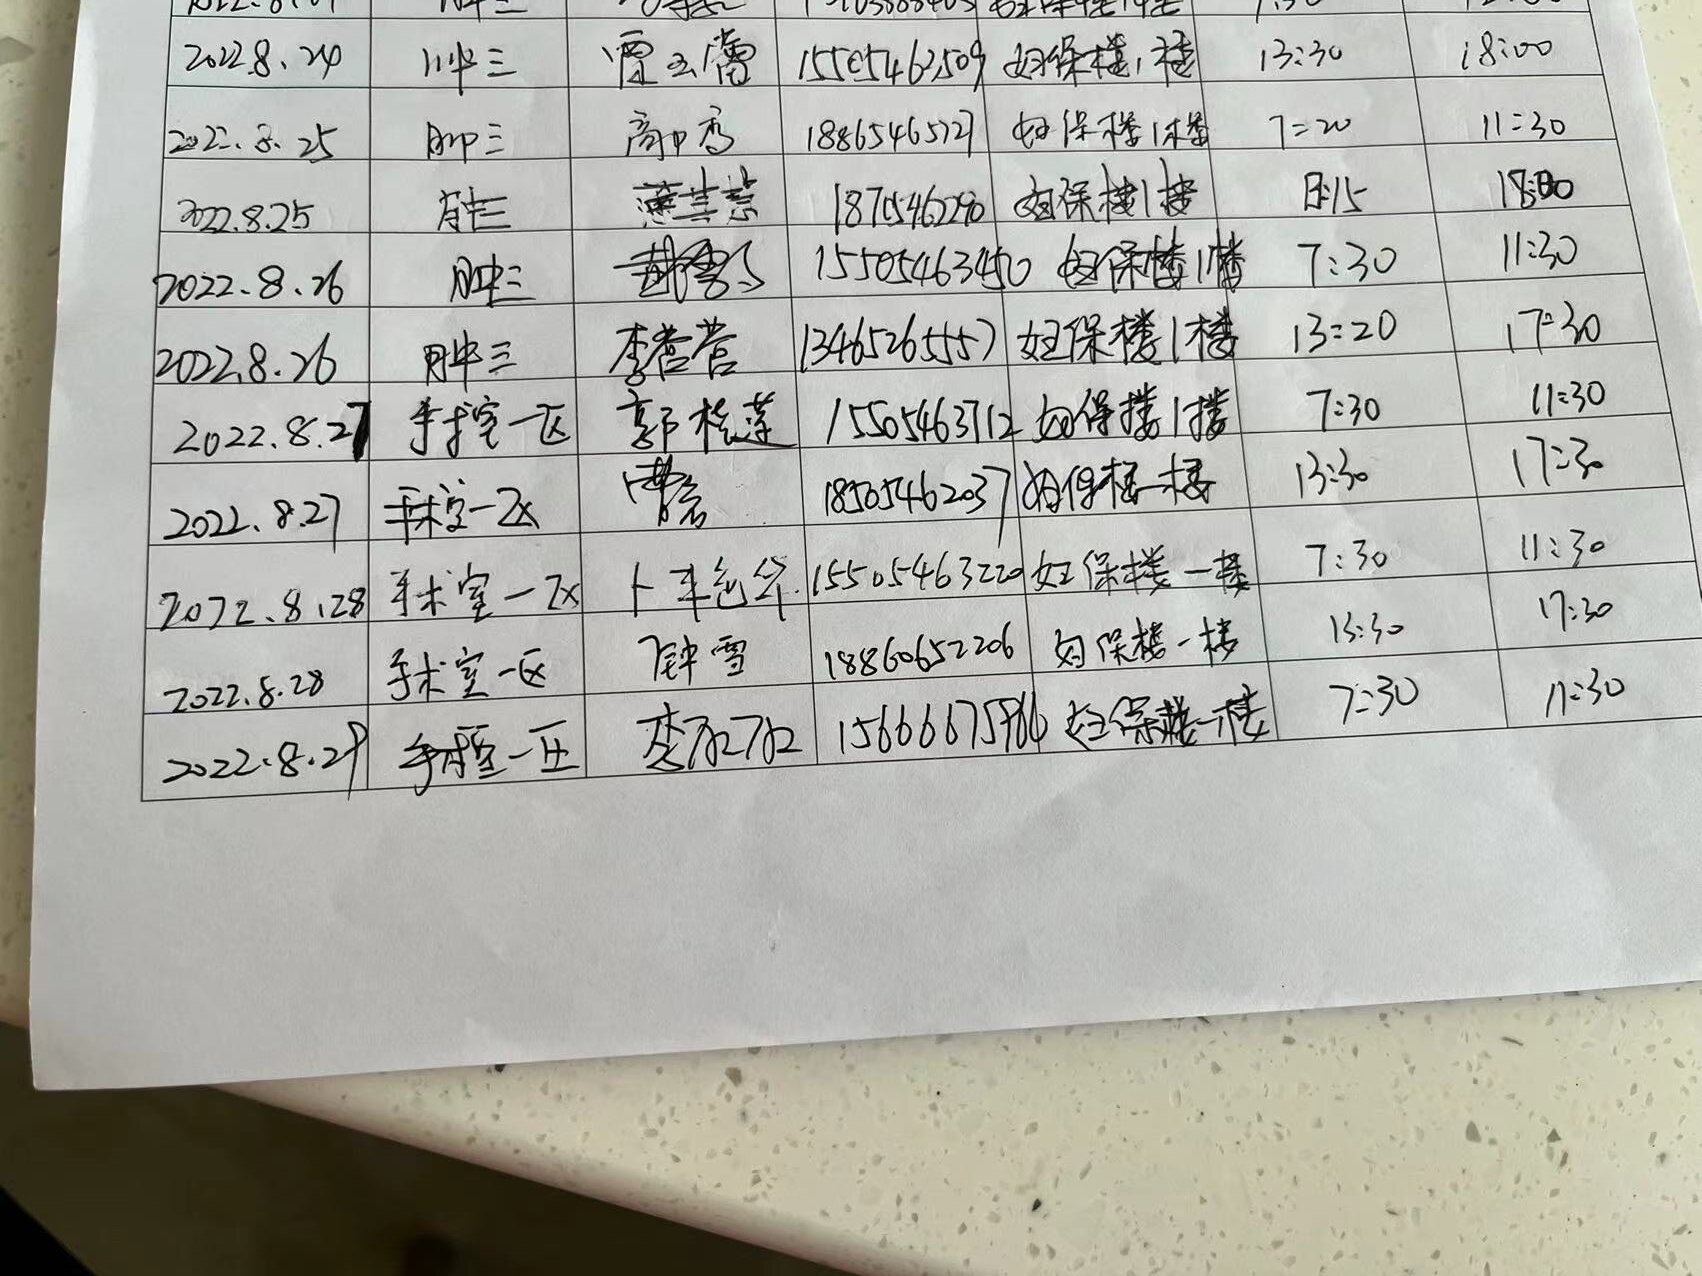 2022.8.24 肿三 15505462509 妇保楼1楼 13:30 18:00
2022.8.25 肿三 18865465727 妇保楼1楼 7:20 11:30
2022.8.25 肿三 18705462290 妇保楼1楼 :15 18:00
2022.8.26 肿三 15505463450 妇保楼1楼 7:30 11:30
2022.8.26 肿三 李营营 13465265557 妇保楼1楼 13:20 17:30
2022.8.27 手术室一区 郭桂莲 15505463712 妇保楼1楼 7:30 11:30
2022.8.27 手术室一区 18505462037 妇保楼一楼 13:30 17:30
2022.8.28 手术室一区 15505463220 妇保楼一楼 7:30 11:30
2022.8.28 手术室一区 钟雪 18860652206 妇保楼一楼 13:30 17:30
2022.8.29 手术室一区 15666675966 妇保楼一楼 7:30 11:30